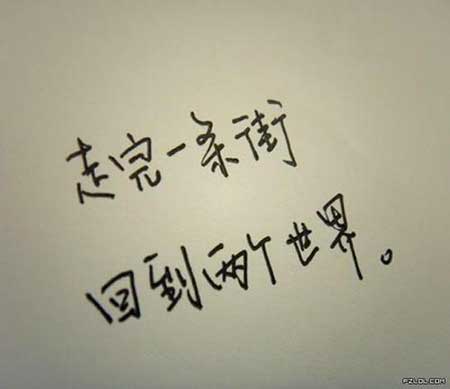 走完一条街
回到两个世界。
PZLDL.COM